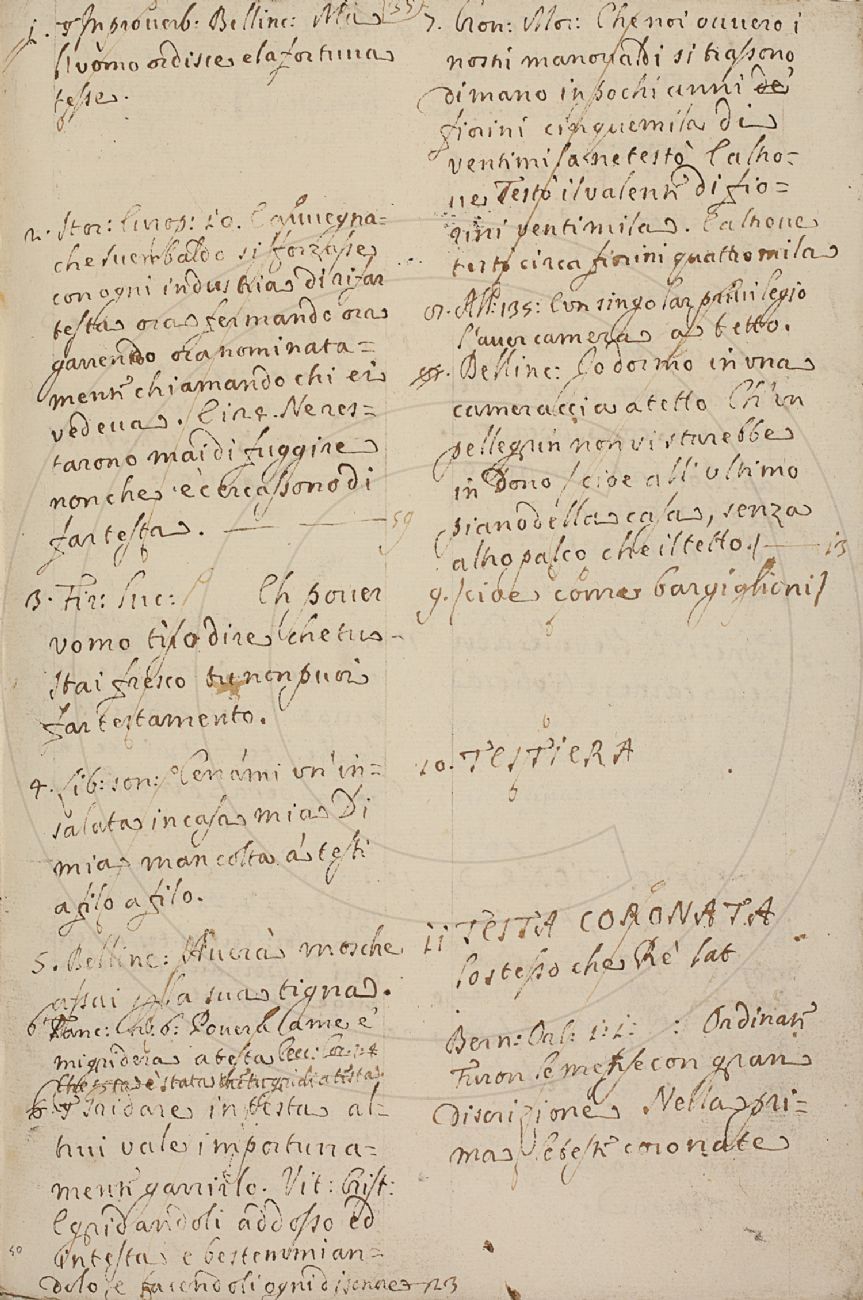 1. § In prouerb: Bellinc: Ma
l'uomo ordisce e la fortuna
tesse.
2. Stor: Europ: 10. E auuegna-
che Suembaldo si sforzasse
con ogni industria di rifar
testa ora fermando ora
garrendo ora nominata-
mente chiamando chi ei
vedeua. E
Ne res-
tarono mai di fuggire
non che e' cercassono di
far testa. 59
3. Fir: Luc: Eh pouer
vomo ti so dire che tu
stai fresco tu non puoi
far testamento.
4. Lib: son: Cenami un'in-
salata in casa mia di
mia man colta a testi
a filo a filo.
5. Bellinc: Auerà mosche
assai p la sua tigna.
6. Pouer
mi griderà a testa
§ Gridare in testa al-
trui vale importuna-
mente garrirlo. Vit: Crist:
E gridandoli addosso ed
in testa e bestemmian-
dolo, e facendoli ogni disonore 23
7. Cron: Mor: Che noi ouuero i
nostri manoualdi si trassono
di mano in pochi anni de'
fiorini cinquemila di
ventimila ne testò E altro-
ue Testò il valente di fio-
rini ventimila. E altroue
testò circa fiorini quattromila
8. All: 135: E un singolar priuilegio
l'auer camera a tetto.
Bellinc: Io dormo in una
cameraccia a tetto Ch'un
pellegrin non vi starebbe
in dono / cioe all'ultimo
piano della casa, senza
altro palco che il tetto./ 13
9. /cioe come bargiglioni/
10. TESTIERA
11 TESTA CORONATA
Lo stesso che Rè lat
Bern: Orl: 1: 1: : Ordinate
Furon le mense con gran
discrizione Nella pri-
ma le teste coronate